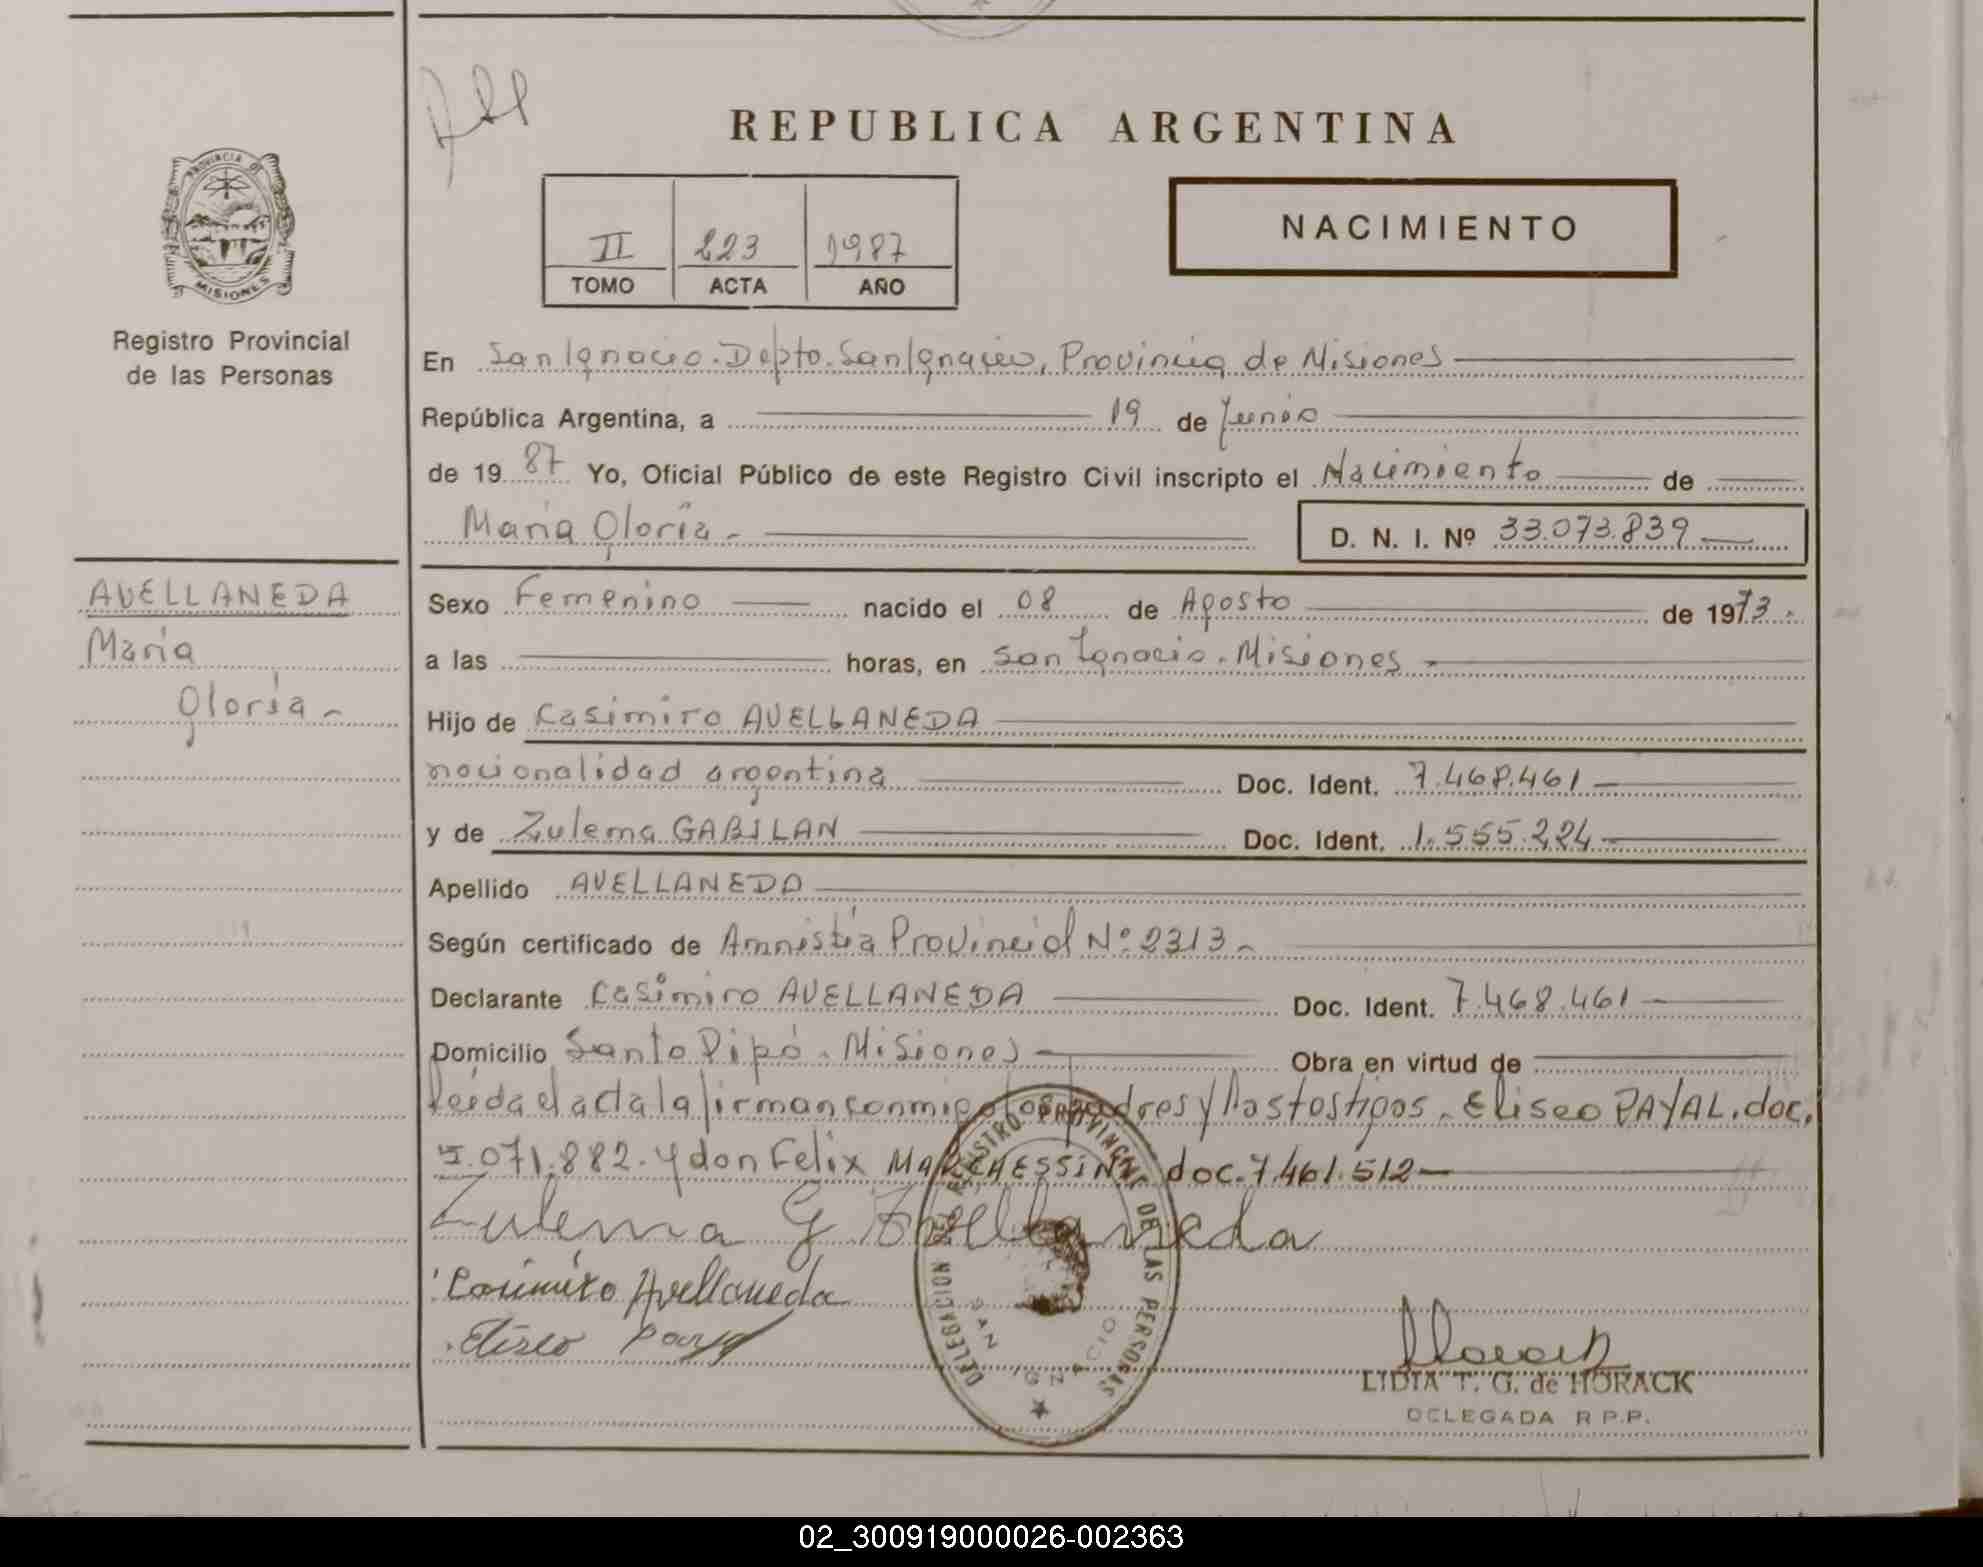 REPUBLICA ARGENTINA
PROVINCIA DE MISIONES
Registro Provincial
de las Personas
II 223 1987
TOMO ACTA AÑO
NACIMIENTO
En San Ignacio. Depto. San Ignacio, Provincia de Misiones
República Argentina, a 19 de Junio
de 1987 Yo, Oficial Público de este Registro Civil inscripto el Nacimiento de
María Gloria.- D. N. I. Nº 33.073.839
AVELLANEDA
María
Gloria.-
Sexo Femenino nacido el 08 de Agosto de 1973.-
a las horas, en San Ignacio. Misiones.-
Hijo de Casimiro AVELLANEDA
nacionalidad argentina Doc. Ident. 7.468.461
y de Zulema GABILAN Doc. Ident. 1.555.224
Apellido AVELLANEDA
Según certificado de Amnistía Provincial Nº 2313.-
Declarante Casimiro AVELLANEDA Doc. Ident. 7.468.461
Domicilio Santo Pipó. Misiones Obra en virtud de
leída el acta la firman conmigo los padres y los testigos. Eliseo PAYAL. doc.
5.071.882. y don Felix MARCHESSINI doc. 7.461.512
Zulema G Avellaneda
Casimiro Avellaneda
Eliseo
DELEGACION DEL REGISTRO PROVINCIAL DE LAS PERSONAS
SAN IGNACIO
LIDIA T. G. de HORACK
DELEGADA R.P.P.
02_300919000026-002363